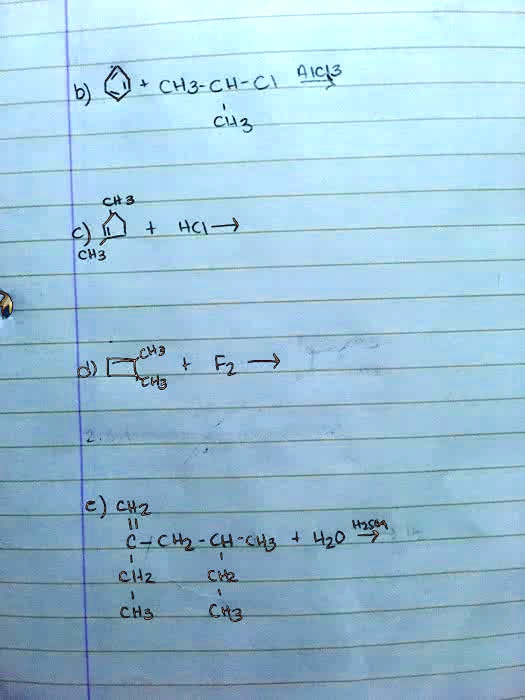 b) + CH3-CH-Cl AlCl3
CH3
CH3
c) + HCl→
CH3
d) CH3 + F2 →
CH3
2.
e) CH2
||
C-CH2-CH-CH3 + H2O H2SO4 →
CH2 CH2
CH3 CH3